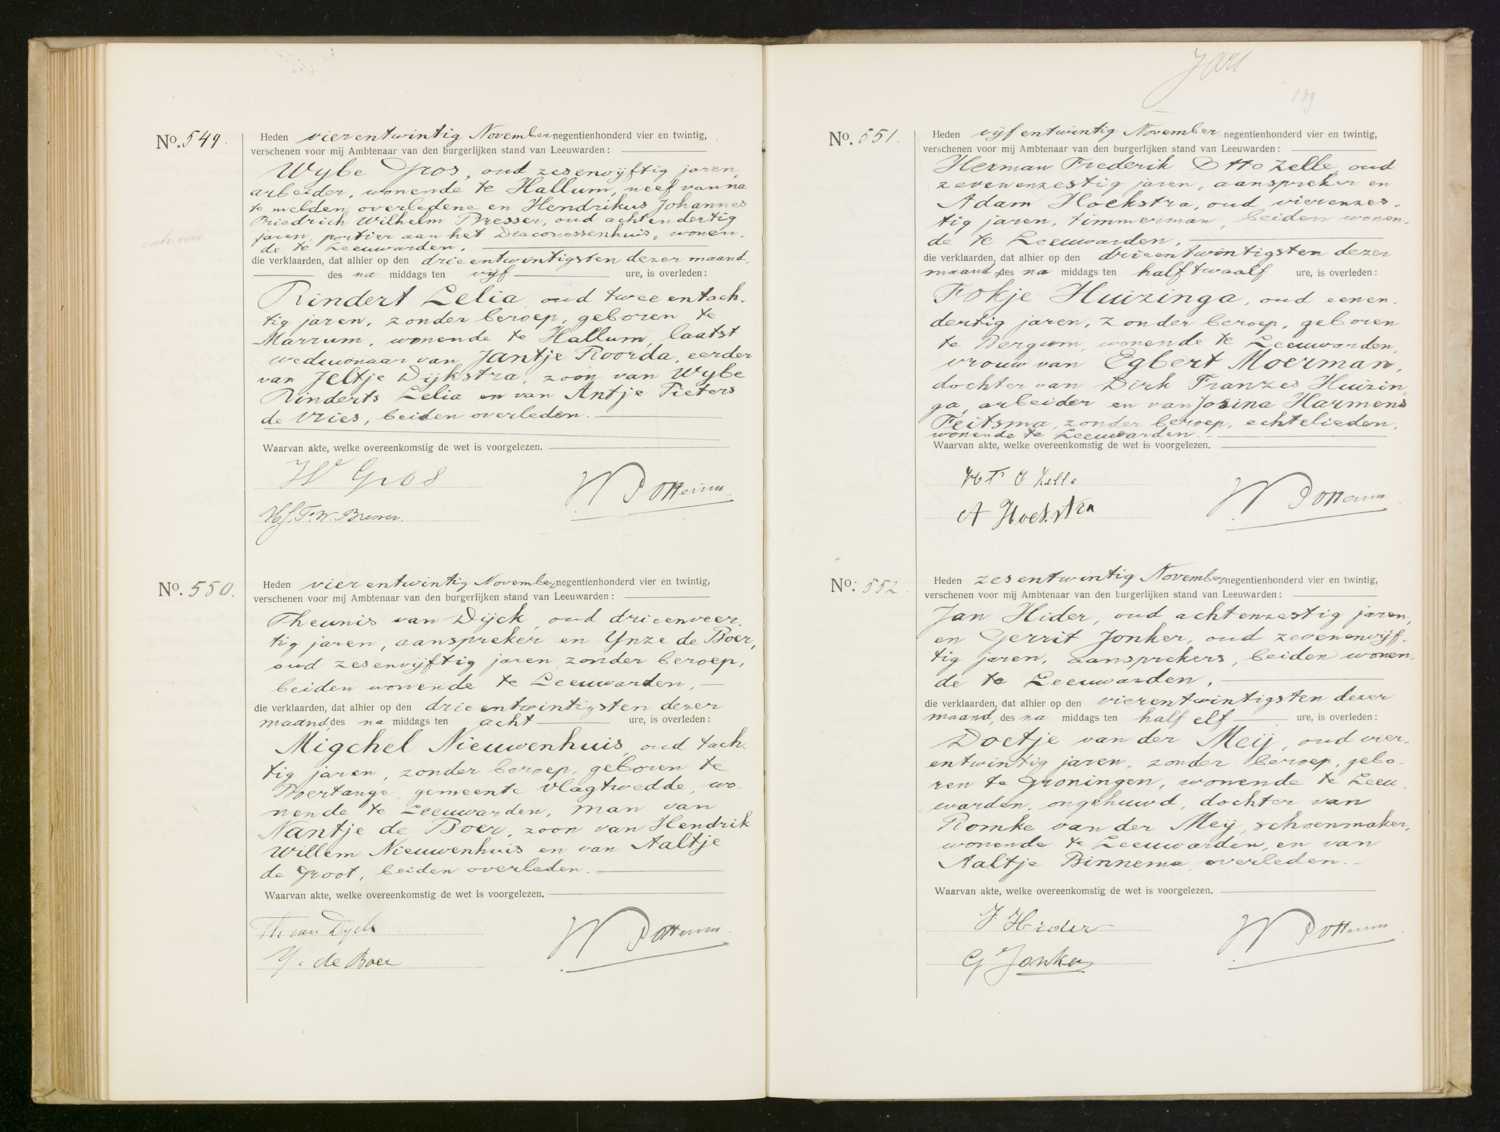 No. 549.
Heden vierentwintig November negentienhonderd vier en twintig,
verschenen voor mij Ambtenaar van den burgerlijken stand van Leeuwarden:
Wybe Gros, oud zesenvijftig jaren,
arbeider, wonende te Hallum, neef van na
te melden overledene en Hendrikus Johannes
Friedrich Wilhelm Bresser, oud achtendertig
jaren, portier aan het Diaconessenhuis, wonen-
de te Leeuwarden.
die verklaarden, dat alhier op den drieentwintigsten dezer maand
des na middags ten vijf ure, is overleden:
Rindert Lelia, oud tweeentach-
tig jaren, zonder beroep, geboren te
Marrum, wonende te Hallum, laatst
weduwnaar van Jantje Roorda, eerder
van Jeltje Dijkstra, zoon van Wybe
Rinderts Lelia en van Antje Pieters
de Vries, beiden overleden.
Waarvan akte, welke overeenkomstig de wet is voorgelezen.
W Gros
H.J.F.W. Bresser.
No. 550.
Heden vierentwintig November negentienhonderd vier en twintig,
verschenen voor mij Ambtenaar van den burgerlijken stand van Leeuwarden:
Theunis van Dijck, oud drieenveer-
tig jaren, aanspreker en Ynze de Boer,
oud zesenvijftig jaren, zonder beroep,
beiden wonende te Leeuwarden,
die verklaarden, dat alhier op den drieentwintigsten dezer
maand, des na middags ten acht ure, is overleden:
Migchel Nieuwenhuis, oud tach-
tig jaren, zonder beroep, geboren te
Boertange, gemeente Vlagtwedde, wo-
nende te Leeuwarden, man van
Nantje de Boer, zoon van Hendrik
Willem Nieuwenhuis en van Aaltje
de Groot, beiden overleden.
Waarvan akte, welke overeenkomstig de wet is voorgelezen.
Th van Dijck
Y. de Boer
No. 551.
Heden vijfentwintig November negentienhonderd vier en twintig,
verschenen voor mij Ambtenaar van den burgerlijken stand van Leeuwarden:
Herman Frederik Otto Zelle, oud
zevenenzestig jaren, aanspreker en
Adam Hoekstra, oud vierenzes-
tig jaren, timmerman, beiden wonen-
de te Leeuwarden,
die verklaarden, dat alhier op den drieentwintigsten dezer
maand, des na middags ten half twaalf ure, is overleden:
Fokje Huizinga, oud eenen-
dertig jaren, zonder beroep, geboren
te Bergum, wonende te Leeuwarden,
vrouw van Egbert Moerman,
dochter van Dirk Franzes Huizin-
ga, arbeider en van Josina Harmens
Feitsma, zonder beroep, echtelieden,
wonende te Leeuwarden.
Waarvan akte, welke overeenkomstig de wet is voorgelezen.
H F O Zelle
A Hoekstra
No. 552.
Heden zesentwintig November negentienhonderd vier en twintig,
verschenen voor mij Ambtenaar van den burgerlijken stand van Leeuwarden:
Jan Hider, oud achtenzestig jaren,
en Gerrit Jonker, oud zevenenvijf-
tig jaren, aansprekers, beiden wonen-
de te Leeuwarden,
die verklaarden, dat alhier op den vierentwintigsten dezer
maand, des na middags ten half elf ure, is overleden:
Doetje van der Meij, oud vier-
entwintig jaren, zonder beroep, gebo-
ren te Groningen, wonende te Leeu-
warden, ongehuwd, dochter van
Romke van der Meij, schoenmaker,
wonende te Leeuwarden, en van
Aaltje Binnema, overleden.
Waarvan akte, welke overeenkomstig de wet is voorgelezen.
J Hider
G Jonker